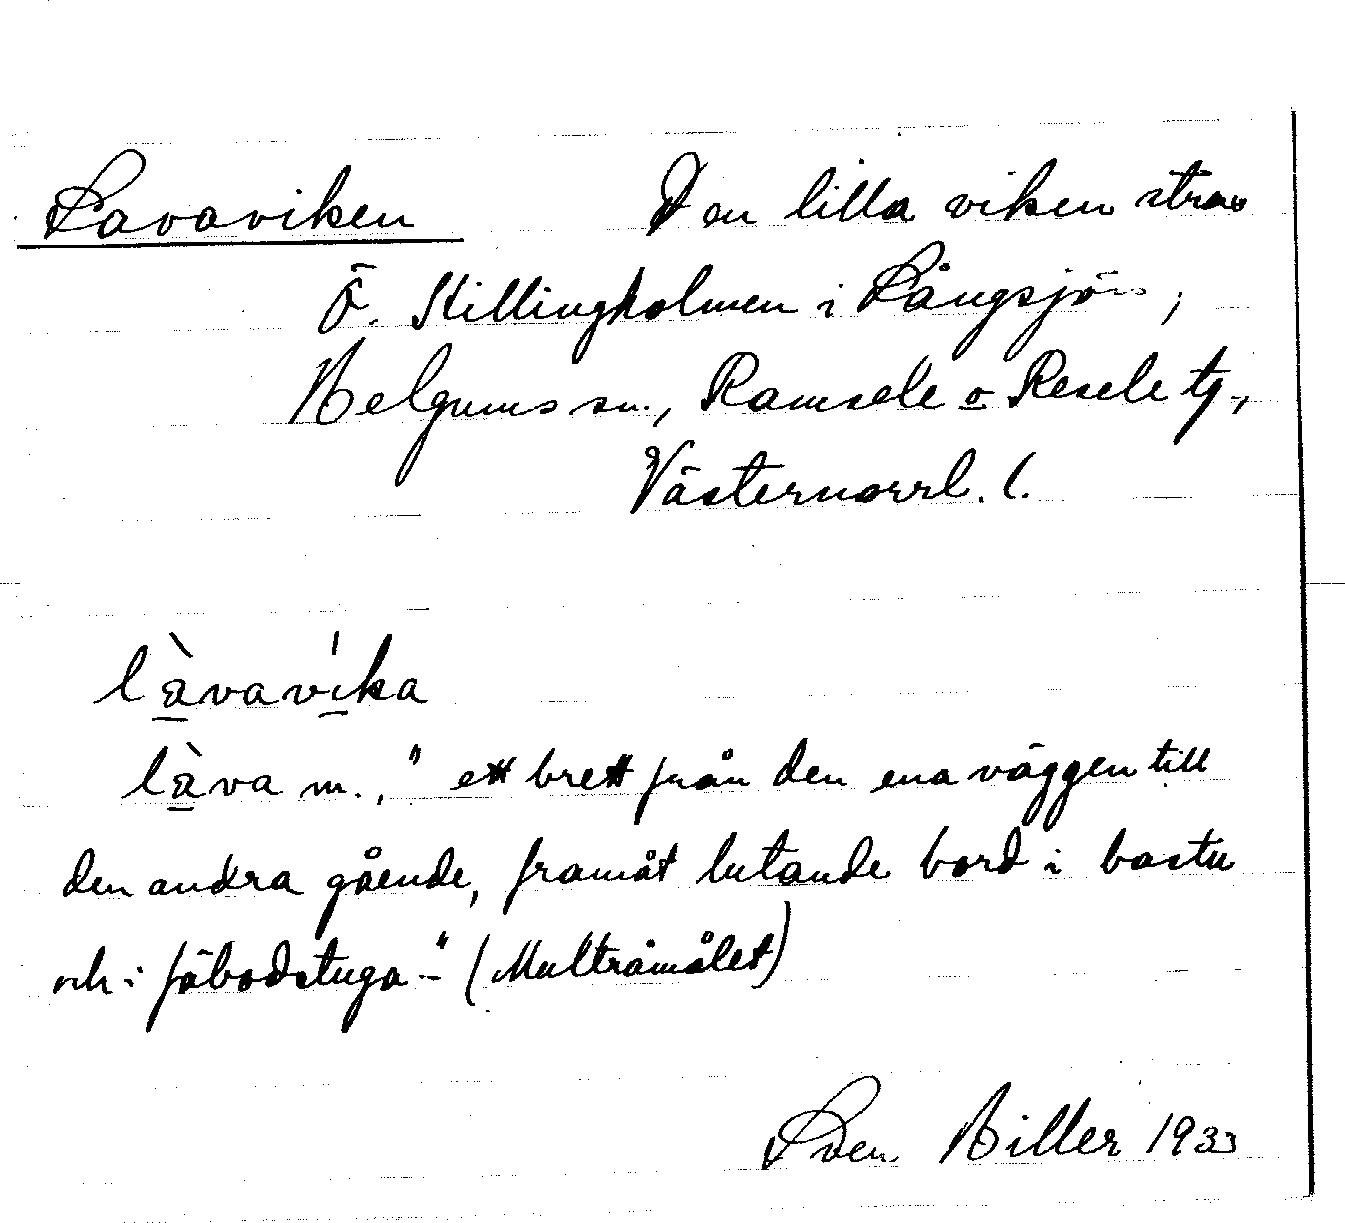 Lavaviken Den lilla viken strax
Ö. Killingholmen i Långsjön,
Helgums sn., Ramsele o Resele tg,
Västernorrl. l.
làvavíka
làva m., "ett brett från den ena väggen till
den andra gående, framåt lutande bord i bastu
och i fäbodstuga -" (Multråmålet)
Sven Hiller 1933